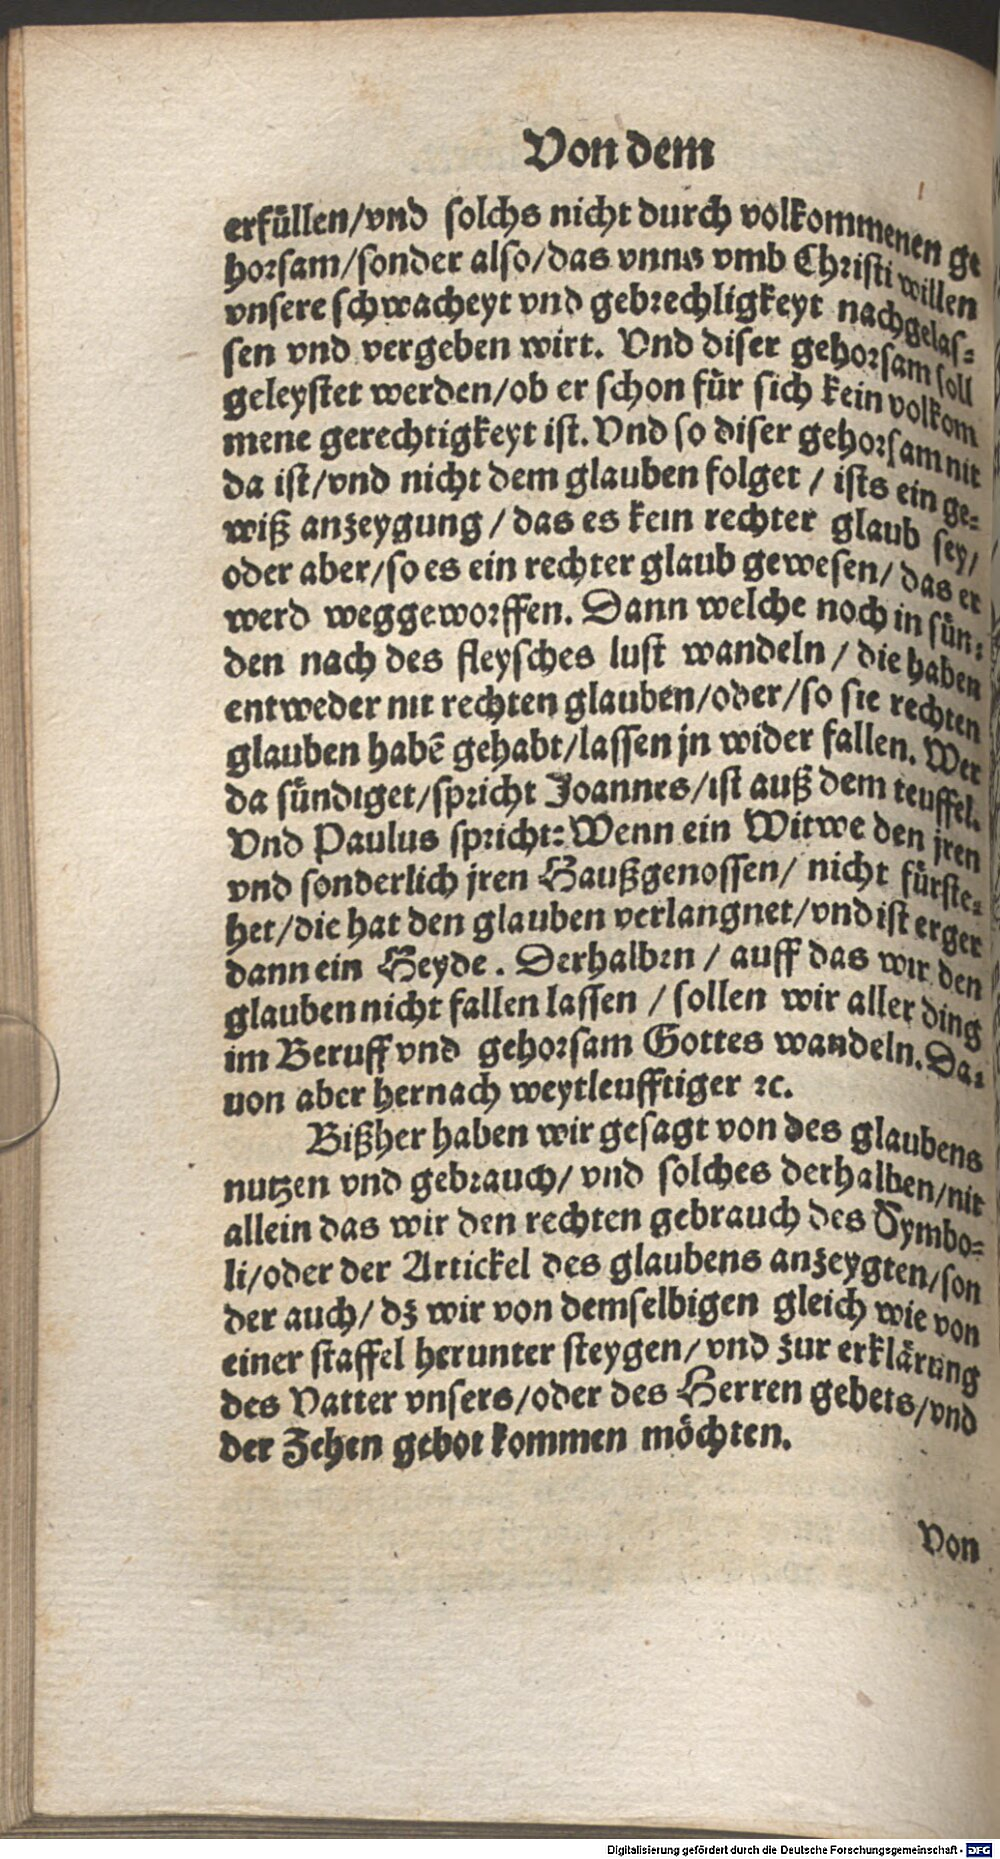 Von dem
erfüllen/vnd solchs nicht durch volkommenen ge
horsam/sonder also/das vnns vmb Christi willen
vnsere schwacheyt vnd gebrechligkeyt nachgelas-
sen vnd vergeben wirt. Vnd diser gehorsam soll
geleystet werden/ob er schon für sich kein volkom
mene gerechtigkeyt ist. Vnd so diser gehorsam nit
da ist/vnd nicht dem glauben folget / ists ein ge-
wiß anzeygung / das es kein rechter glaub sey/
oder aber/so es ein rechter glaub gewesen/ das er
werd weggeworffen. Dann welche noch in sün-
den nach des fleysches lust wandeln / die haben
entweder nit rechten glauben/oder/so sie rechten
glauben habē gehabt/lassen jn wider fallen. Wer
da sündiget/spricht Joannes/ist auß dem teuffel.
Vnd Paulus spricht: Wenn ein Witwe den jren
vnd sonderlich jren Haußgenossen/ nicht fürste-
het/die hat den glauben verlangnet/vnd ist erger
dann ein Heyde. Derhalben / auff das wir den
glauben nicht fallen lassen / sollen wir aller ding
im Beruff vnd gehorsam Gottes wandeln. Da-
uon aber hernach weytleufftiger ꝛc.
Bißher haben wir gesagt von des glaubens
nutzen vnd gebrauch/ vnd solches derhalben/nit
allein das wir den rechten gebrauch des Symbo-
li/oder der Artickel des glaubens anzeygten/son
der auch/ dz wir von demselbigen gleich wie von
einer staffel herunter steygen/ vnd zur erklärung
des Vatter vnsers/oder des Herren gebets/vnd
der Zehen gebot kommen möchten.
Von
Digitalisierung gefördert durch die Deutsche Forschungsgemeinschaft - DFG